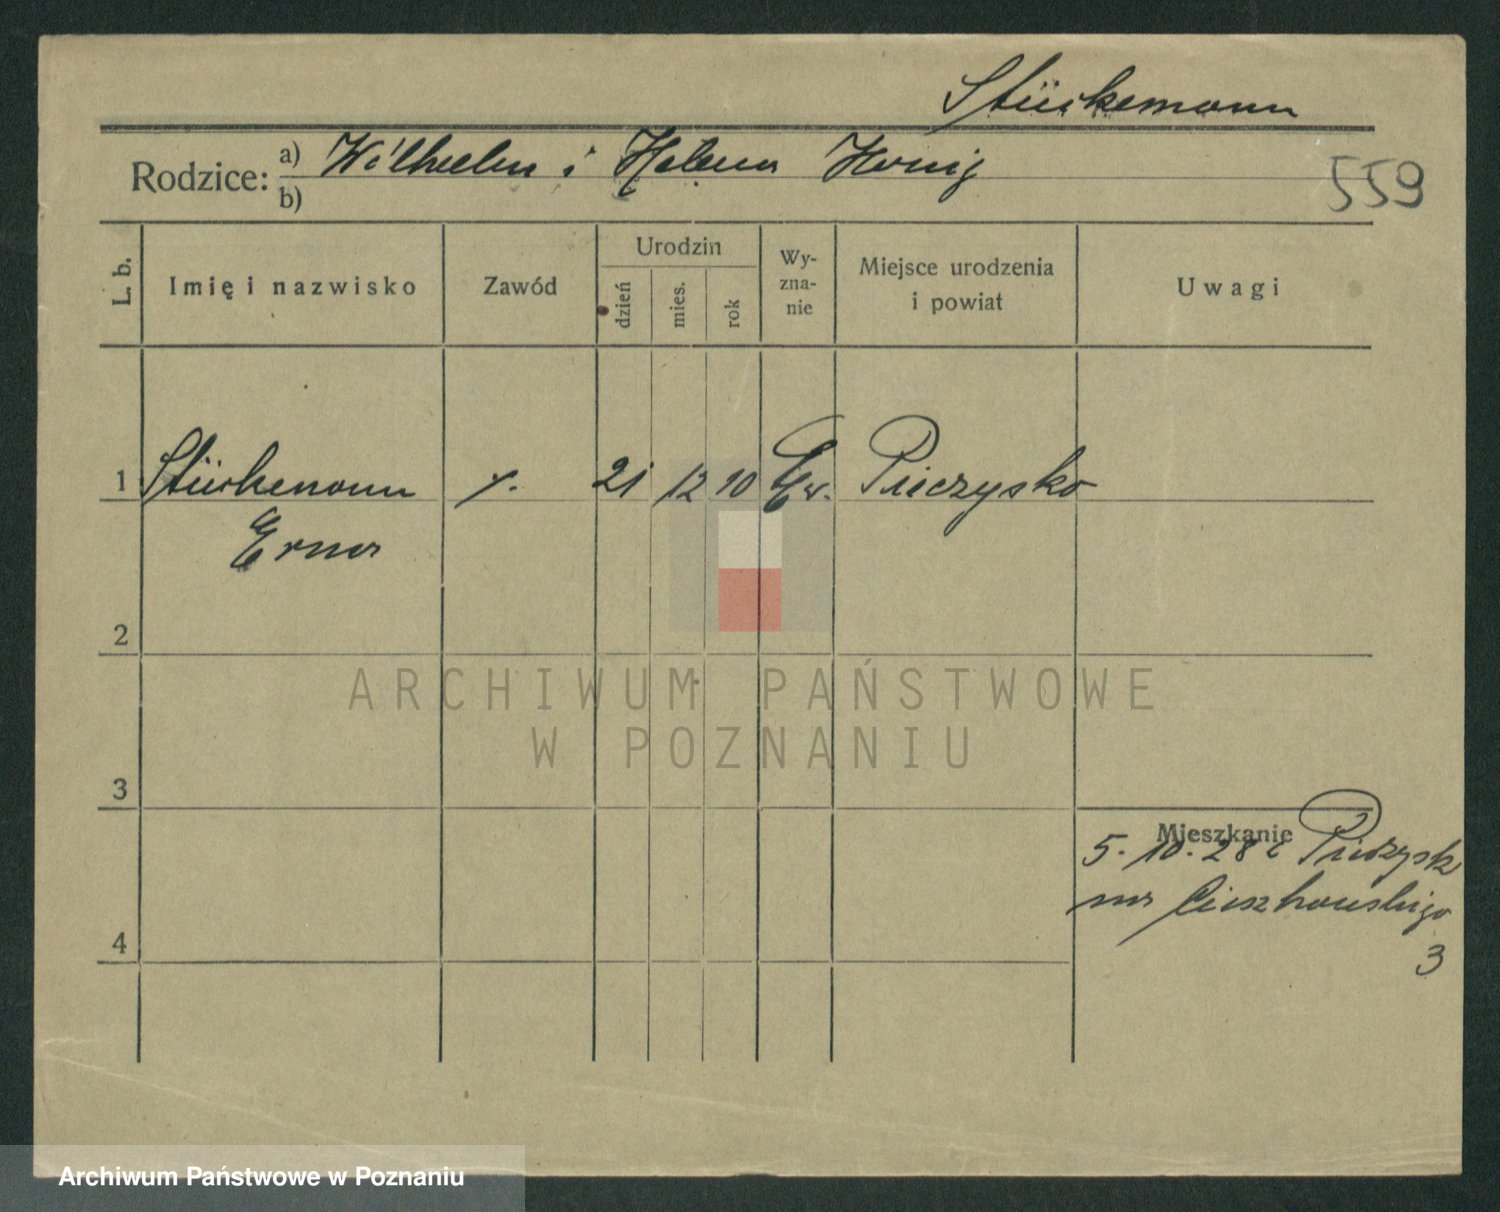 Stückemann
Rodzice: a) Wilhelm i Helena Konig
b)
559
L. b.
Imię i nazwisko
Zawód
Urodzin
dzień
mies.
rok
Wy-
zna-
nie
Miejsce urodzenia
i powiat
Uwagi
1 Stückemann 21 12 10 Ew. Pieczysko
Erna
2
ARCHIWUM PAŃSTWOWE
W POZNANIU
3
Mieszkanie
5. 10. 28
4
3
Archiwum Państwowe w Poznaniu